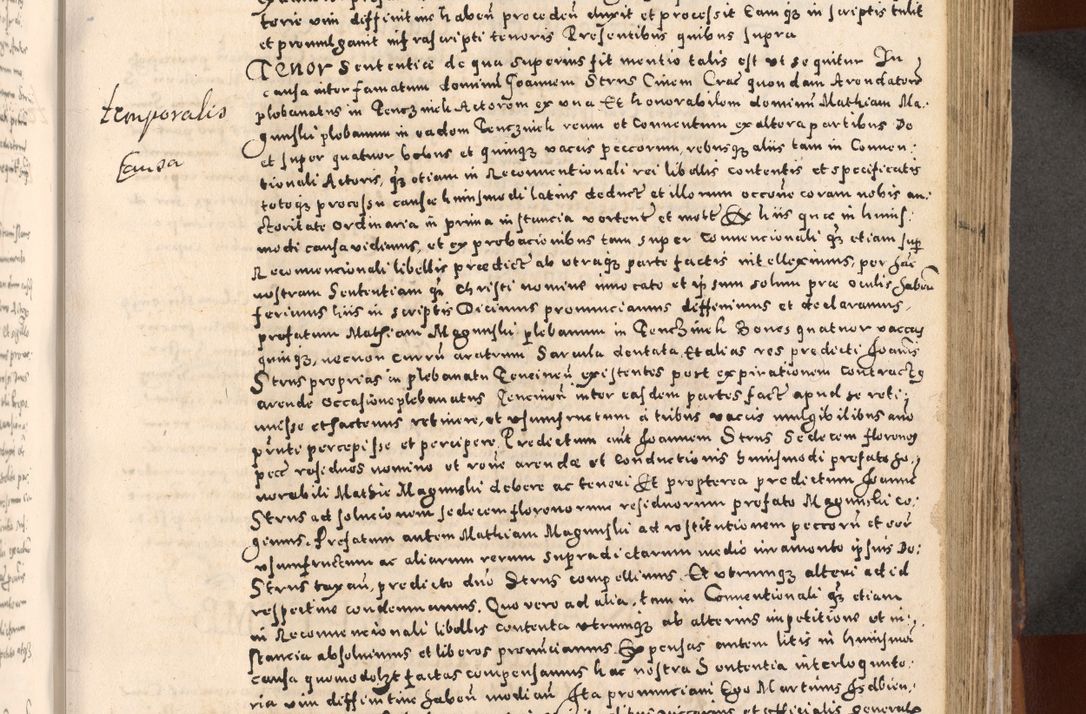 torie vim diffinitivae habeñ procedeñ duxit et processit Eamqȝ in scriptis tulit
et promulgauit infrascripti tenoris Presentibus quibus supra
Tenor Sententiæ de qua superius fit mentio talis est ut sequitur In
causa inter famatum dominum Joannem Strus Ciuem Crac quondam Arendatorē
temporalis
plebanatus in Tencȝinek Actorem ex vna Et honorabilem dominum Mathiam Ma-
gunski plebanum in eadem Tencȝinek reum et Conuentum ex altera partibus De
causa
et super quatuor bobus et quinqȝ vaccis peccorum, rebusqȝ aliis tam in Conuen-
tionali Actoris, qȝ etiam in Reconuentionali rei libellis contentis et specificatis
totoqȝ processu causæ huiusmodi latius deduct et illorum occōne coram nobis au-
ctoritate ordinaria in prima instancia vertent et mott Ex hiis quæ in huius-
modi causa vidimus, et ex probacionibus tam super Conuencionali qȝ etiam sup
Reconuencionali libellis prædict ab vtraqȝ parte factis intelleximus, per hāc
nostram Sententiam qȝ Christi nomine inuocato et ipsum solum præ oculis habeñ
ferimus hiis in scriptis Dicimus pronunciamus diffinimus et declaramus,
prefatum Mathiam Magunski plebanum in Tencȝinek Boues quatuor vaccas
quinqȝ, necnon currū aratrum Sarcula dentata, Et alias res predicti Joannis
Strus proprias in plebanatu Tencineñ existentes post expirationem Contractȝ
arende occasione plebanatus Tencineñ inter easdem partes fact apud se reti-
nuisse et hactenus retinere, et vsumfructum a tribus vaccis mulgibilibus
percepisse et percipere, Predictum aut Joannem Strus Sedecem florenos
pecc residuos nomine et rōne arendæ et conductionis huiusmodi prefato ho-
norabili Mathie Magunski debere ac teneri Et propterea predictum Joanne
Strus ad solucionem sedecem florenorum residuorum prefato Magunski co-
gimus. Prefatum autem Mathiam Magunski ad restitutionem peccorū et
vsumfructum ac aliarum rerum supradictarum medio iuramento ipsius Do:
Strus taxañ, predicto dnō Strus compellimus. Et vtrumqȝ alteri ad id
respectiue condemnamus. Quo vero ad alia, tam in Conuentionali qȝ etiam
in Reconuencionali libellis contenta vtrumqȝ ab alterius impetitione et in-
stancia absoluimus et liberos pronūciamus. Expensas autem litis in huiusmōi
causa quomodolȝt factas compensamus hac nostra Sententia interlocuto-
ria vim diffinitiuæ habeñ mediañ Ita pronunciaui Ego Martinus